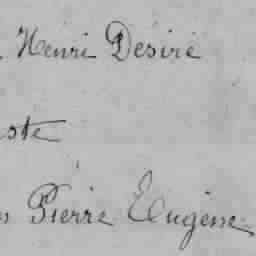 Henri Désiré
Pierre Eugène